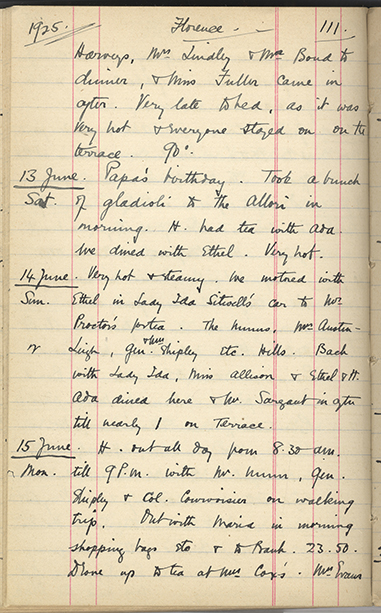 1925. Florence. 111.
Harveys, Mrs Lindley & Mrs Bond to
dinner, & Miss Fuller came in
after. Very late to bed, as it was
very hot & everyone stayed on on the
terrace. 90°.
13 June. Papa's birthday. Took a bunch
Sat. of gladioli to the Allori in
morning. H. had tea with Ada.
We dined with Ethel. Very hot.
14 June. Very hot & steamy. We motored with
Sun. Ethel in Lady Ida Sitwell's car to Mrs
Proctor's for tea. The Munns, Mrs Austen-
Leigh, Gen. & Mrs Shipley etc. Hills. Back
with Lady Ida, Miss Allison & Ethel & H.
Ada dined here & Mr. Sargaut in after
till nearly 1 on Terrace.
15 June. H. out all day from 8.30 am.
Mon. till 9 P.m. with Mr. Munn, Gen.
Shipley & Col. Courvoisier on walking
trip. Out with Maria in morning
shopping bags etc & to Bank. 23.50.
Drove up to tea at Mrs Cox's. Mrs Evans